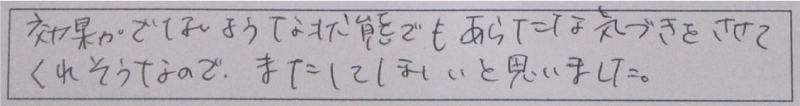 効果がでてないような状態でもあらたな気づきをさせて
くれそうなので、またしてほしいと思いました。